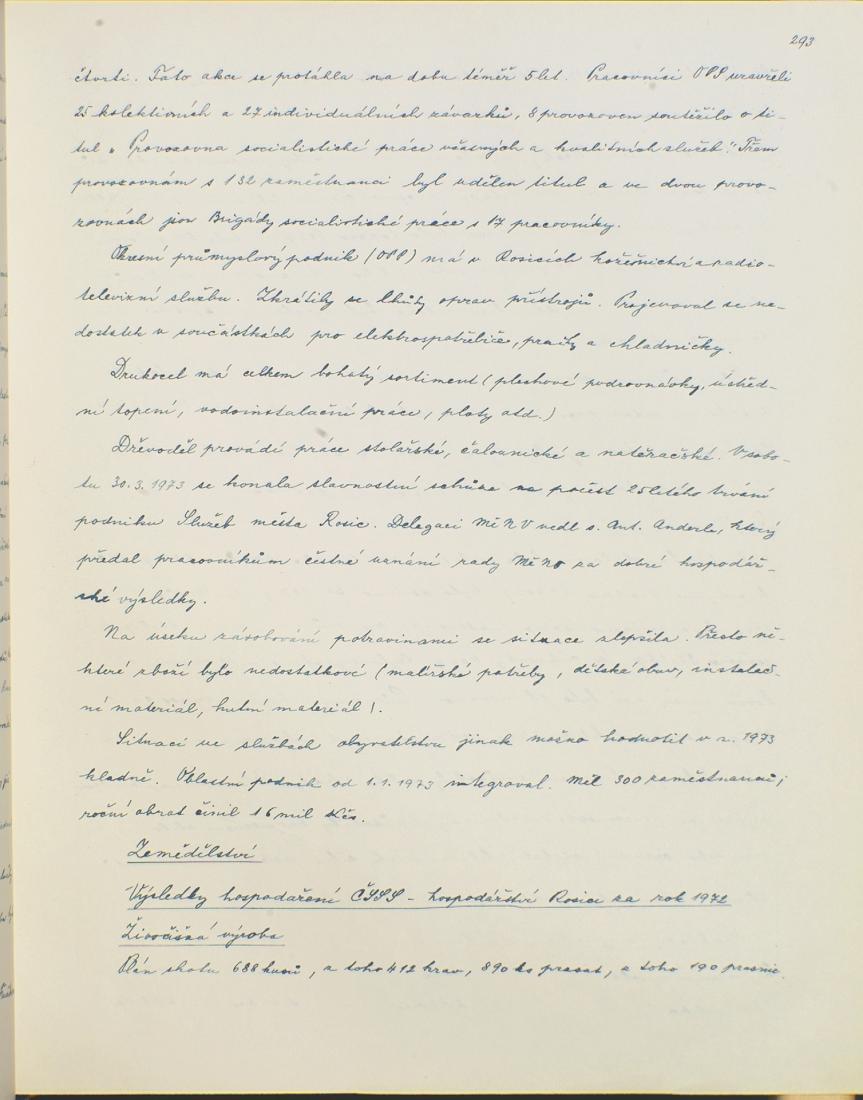 293
čtvrti. Tato akce se protáhla na dobu téměř 5 let. Pracovníci OPP uzavřeli
25 kolektivních a 27 individuálních závazků, 8 provozoven soutěžilo o ti-
tul „Provozovna socialistické práce vzorných a kvalitních služeb". Třem
provozovnám s 132 zaměstnanci byl udělen titul a ve dvou provo-
zovnách jsou Brigády socialistické práce s 17 pracovníky.
Okresní průmyslový podnik (OPP) má v Rosicích kožešnictví a radio-
televizní službu. Zkrátily se lhůty oprav přístrojů. Projevoval se ne-
dostatek v součástkách pro elektrospotřebiče, pračky a chladničky.
Drukocel má celkem bohatý sortiment (plechové podrovnávky, ústřed-
ní topení, vodoinstalační práce, ploty atd.)
Dřevoděl provádí práce stolařské, čalounické a natěračské. V sobo-
tu 30.3.1973 se konala slavnostní schůze na počest 25letého trvání
podniku Služeb města Rosic. Delegaci MěNV vedl s. Ant. Anderle, který
předal pracovníkům čestné uznání rady MěNV za dobré hospodář-
ské výsledky.
Na úseku zásobování potravinami se situace zlepšila. Přesto ně-
které zboží bylo nedostatkové (malířské potřeby, dětská obuv, instalač-
ní materiál, hutní materiál).
Situaci ve službách obyvatelstvu jinak možno hodnotit v r. 1973
kladně. Oblastní podnik od 1.1.1973 integroval. Měl 300 zaměstnanců;
roční obrat činil 16 mil Kčs.
Zemědělství
Výsledky hospodaření ČSSS - hospodářství Rosice za rok 1972
Živočišná výroba
Plán skotu 688 kusů, z toho 412 krav, 890 ks prasat, z toho 190 prasnic.